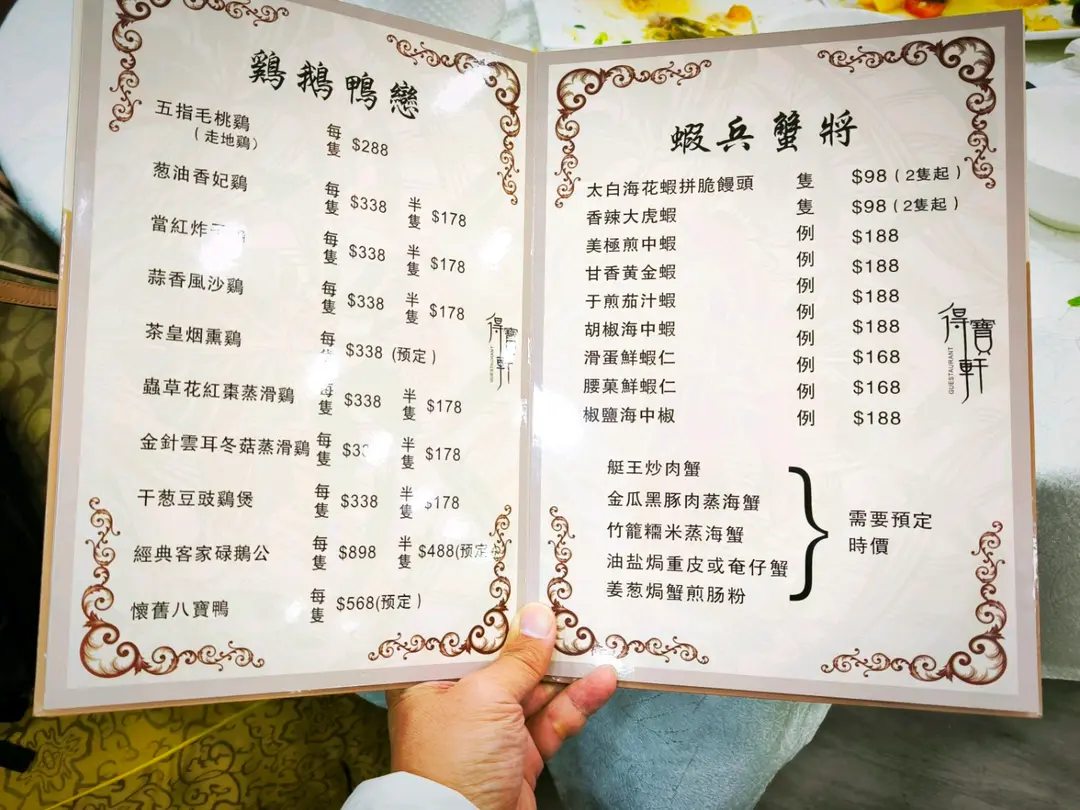 鷄鵝鴨戀
五指毛桃鷄
（走地鷄）
每隻 $288
葱油香妃鷄 每隻 $338 半隻 $178
當紅炸 每隻 $338 半隻 $178
蒜香風沙鷄 每隻 $338 半隻 $178
茶皇烟熏鷄 每 $338 (预定)
蟲草花紅棗蒸滑鷄 每隻 $338 半隻 $178
金針雲耳冬菇蒸滑鷄 每隻 半隻 $178
干葱豆豉鷄煲 每隻 $338 半隻 $178
經典客家碌鵝公 每隻 $898 半隻 $488(预定
懷舊八寶鴨 每隻 $568(预定)
得寶軒
GUESTAURANT
蝦兵蟹將
太白海花蝦拼脆饅頭 隻 $98 (2隻起)
香辣大虎蝦 隻 $98 (2隻起)
美極煎中蝦 例 $188
甘香黄金蝦 例 $188
于煎茄汁蝦 例 $188
胡椒海中蝦 例 $188
滑蛋鮮蝦仁 例 $168
腰菓鮮蝦仁 例 $168
椒鹽海中椒 例 $188
艇王炒肉蟹
金瓜黑豚肉蒸海蟹
竹籠糯米蒸海蟹
油盐焗重皮或奄仔蟹
姜葱焗蟹煎肠粉
需要預定
時價
得寶軒
GUESTAURANT